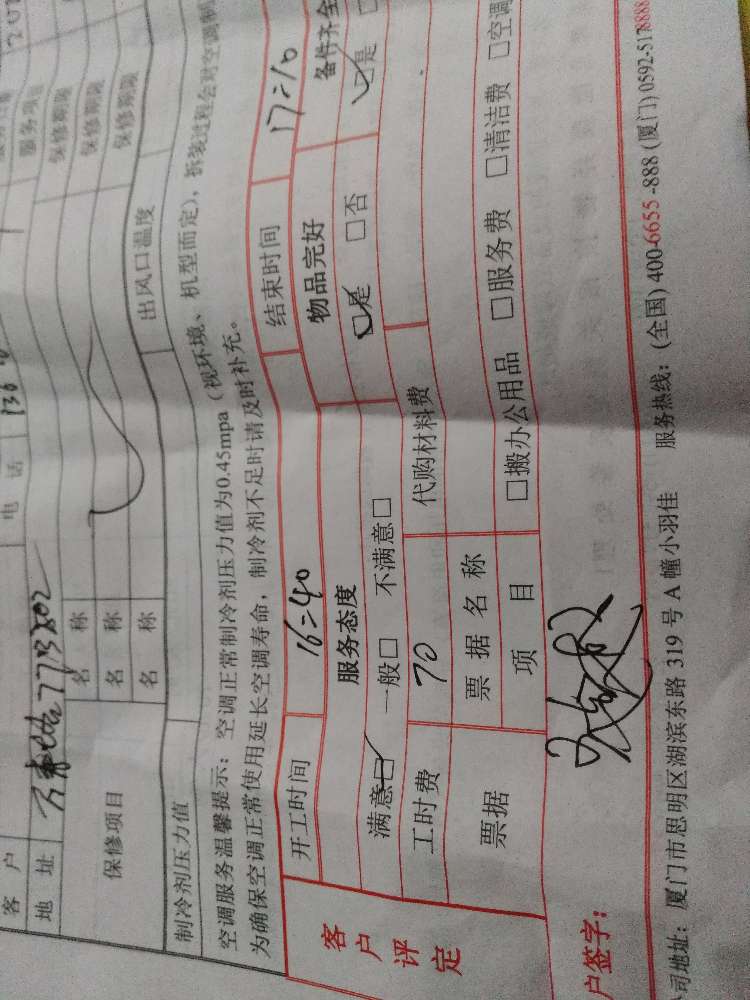 客 户
电 话 136
服务项目
地 址
保修项目
名 称
保修期限
名 称
保修期限
名 称
保修期限
制冷剂压力值
出风口温度
空调服务温馨提示：空调正常制冷剂压力值为0.45mpa（视环境、机型而定），拆装过程会对空调制
为确保空调正常使用延长空调寿命，制冷剂不足时请及时补充。
客户评定
开工时间 16:40 结束时间 17:10
服务态度 物品完好 备件齐全
满意☑ 一般□ 不满意□ ☑是 □否 ☑是
工时费 70 代购材料费
票据 票据名称
项 目 □搬办公用品 □服务费 □清洁费 □空调
户签字：
司地址：厦门市思明区湖滨东路 319 号 A 幢小羽佳 服务热线：(全国) 400-6655-888 (厦门) 0592-5178888